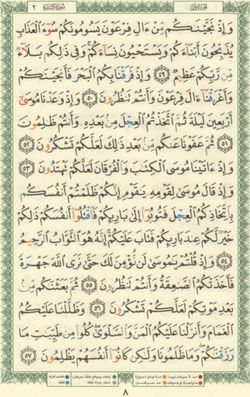 وَإِذْ نَجَّيْنَٰكُم مِّنْ ءَالِ فِرْعَوْنَ يَسُومُونَكُمْ سُوٓءَ ٱلْعَذَابِ
يُذَبِّحُونَ أَبْنَآءَكُمْ وَيَسْتَحْيُونَ نِسَآءَكُمْ وَفِى ذَٰلِكُم بَلَآءٌ
مِّن رَّبِّكُمْ عَظِيمٌ ٤٩ وَإِذْ فَرَقْنَا بِكُمُ ٱلْبَحْرَ فَأَنجَيْنَٰكُمْ
وَأَغْرَقْنَآ ءَالَ فِرْعَوْنَ وَأَنتُمْ تَنظُرُونَ ٥٠ وَإِذْ وَٰعَدْنَا مُوسَىٰٓ
أَرْبَعِينَ لَيْلَةً ثُمَّ ٱتَّخَذْتُمُ ٱلْعِجْلَ مِنۢ بَعْدِهِۦ وَأَنتُمْ ظَٰلِمُونَ
٥١ ثُمَّ عَفَوْنَا عَنكُم مِّنۢ بَعْدِ ذَٰلِكَ لَعَلَّكُمْ تَشْكُرُونَ ٥٢
وَإِذْ ءَاتَيْنَا مُوسَى ٱلْكِتَٰبَ وَٱلْفُرْقَانَ لَعَلَّكُمْ تَهْتَدُونَ ٥٣
وَإِذْ قَالَ مُوسَىٰ لِقَوْمِهِۦ يَٰقَوْمِ إِنَّكُمْ ظَلَمْتُمْ أَنفُسَكُم
بِٱتِّخَاذِكُمُ ٱلْعِجْلَ فَتُوبُوٓا۟ إِلَىٰ بَارِئِكُمْ فَٱقْتُلُوٓا۟ أَنفُسَكُمْ ذَٰلِكُمْ
خَيْرٌ لَّكُمْ عِندَ بَارِئِكُمْ فَتَابَ عَلَيْكُمْ إِنَّهُۥ هُوَ ٱلتَّوَّابُ ٱلرَّحِيمُ
٥٤ وَإِذْ قُلْتُمْ يَٰمُوسَىٰ لَن نُّؤْمِنَ لَكَ حَتَّىٰ نَرَى ٱللَّهَ جَهْرَةً
فَأَخَذَتْكُمُ ٱلصَّٰعِقَةُ وَأَنتُمْ تَنظُرُونَ ٥٥ ثُمَّ بَعَثْنَٰكُم مِّنۢ
بَعْدِ مَوْتِكُمْ لَعَلَّكُمْ تَشْكُرُونَ ٥٦ وَظَلَّلْنَا عَلَيْكُمُ
ٱلْغَمَامَ وَأَنزَلْنَا عَلَيْكُمُ ٱلْمَنَّ وَٱلسَّلْوَىٰ كُلُوا۟ مِن طَيِّبَٰتِ مَا
رَزَقْنَٰكُمْ وَمَا ظَلَمُونَا وَلَٰكِن كَانُوٓا۟ أَنفُسَهُمْ يَظْلِمُونَ ٥٧
٨